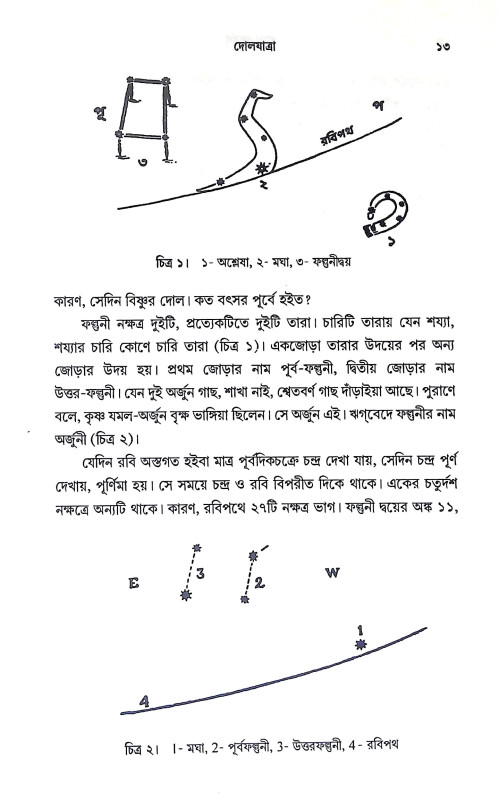 দোলযাত্রা ১৩
পূ প
রবিপথ
৩ ২
১
চিত্র ১। ১- অশ্লেষা, ২- মঘা, ৩- ফল্গুনীদ্বয়
কারণ, সেদিন বিষ্ণুর দোল। কত বৎসর পূর্বে হইত?
ফল্গুনী নক্ষত্র দুইটি, প্রত্যেকটিতে দুইটি তারা। চারিটি তারায় যেন শয্যা,
শয্যার চারি কোণে চারি তারা (চিত্র ১)। একজোড়া তারার উদয়ের পর অন্য
জোড়ার উদয় হয়। প্রথম জোড়ার নাম পূর্ব-ফল্গুনী, দ্বিতীয় জোড়ার নাম
উত্তর-ফল্গুনী। যেন দুই অর্জুন গাছ, শাখা নাই, শ্বেতবর্ণ গাছ দাঁড়াইয়া আছে। পুরাণে
বলে, কৃষ্ণ যমল-অর্জুন বৃক্ষ ভাঙ্গিয়া ছিলেন। সে অর্জুন এই। ঋগ্‌বেদে ফল্গুনীর নাম
অর্জুনী (চিত্র ২)।
যেদিন রবি অস্তগত হইবা মাত্র পূর্বদিকচক্রে চন্দ্র দেখা যায়, সেদিন চন্দ্র পূর্ণ
দেখায়, পূর্ণিমা হয়। সে সময়ে চন্দ্র ও রবি বিপরীত দিকে থাকে। একের চতুর্দশ
নক্ষত্রে অন্যটি থাকে। কারণ, রবিপথে ২৭টি নক্ষত্র ভাগ। ফল্গুনী দ্বয়ের অঙ্ক ১১,
E 3 2 W
1
4
চিত্র ২। 1- মঘা, 2- পূর্বফল্গুনী, 3- উত্তরফল্গুনী, 4 - রবিপথ